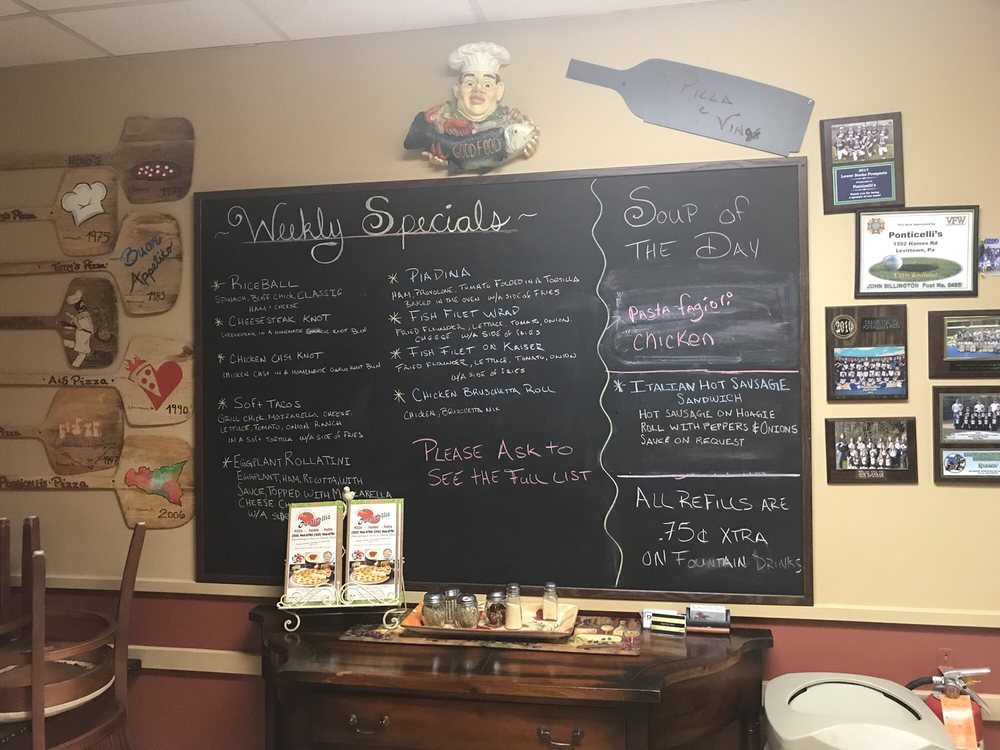 GOOD FOOD
PIZZA
e
VINO
~ Weekly Specials ~
* RICEBALL
SPINACH, BUFF CHICK, CLASSIC
HAM & CHEESE
* CHEESESTEAK KNOT
CHEESESTEAK IN A HOMEMADE GARLIC KNOT BUN
* CHICKEN CHST KNOT
CHICKEN CHST IN A HOMEMADE GARLIC KNOT BUN
* SOFT TACOS
GRILL CHICK, MOZZARELLA CHEESE,
LETTUCE, TOMATO, ONION RANCH
IN A SOFT TORTILLA W/A SIDE OF FRIES
* EGGPLANT ROLLATINI
EGGPLANT, HAM, RICOTTA, WITH
SAUCE, TOPPED WITH MOZZARELLA
CHEESE
W/A SIDE
* PIADINA
HAM, PROVOLONE, TOMATO FOLDED IN A TORTILLA
BAKED IN THE OVEN W/A SIDE OF FRIES
* FISH FILET WRAP
FRIED FLOUNDER, LETTUCE, TOMATO, ONION,
CHEESE W/A SIDE OF FRIES
* FISH FILET ON KAISER
FRIED FLOUNDER, LETTUCE, TOMATO, ONION
W/A SIDE OF FRIES
* CHICKEN BRUSCHETTA ROLL
CHICKEN, BRUSCHETTA MIX
PLEASE ASK TO
SEE THE FULL LIST
SOUP OF
THE DAY
Pasta fagioli
chicken
* ITALIAN HOT SAUSAGE
SANDWICH
HOT SAUSAGE ON HOAGIE
ROLL WITH PEPPERS & ONIONS
SAUCE ON REQUEST
ALL REFILLS ARE
.75¢ XTRA
ON FOUNTAIN DRINKS
Nino's
1973
Pizza
1975
Buon
Appetito
Tony's Pizza
1983
Al's Pizza
1990
Ponticelli's Pizza
2006
Ponticelli's
2017
Lower Bucks Prospects
Ponticelli's
VFW
Ponticelli's
1502 Haines Rd
Levittown, Pa
13th Annual
JOHN BILLINGTON Post No. 6495
2016